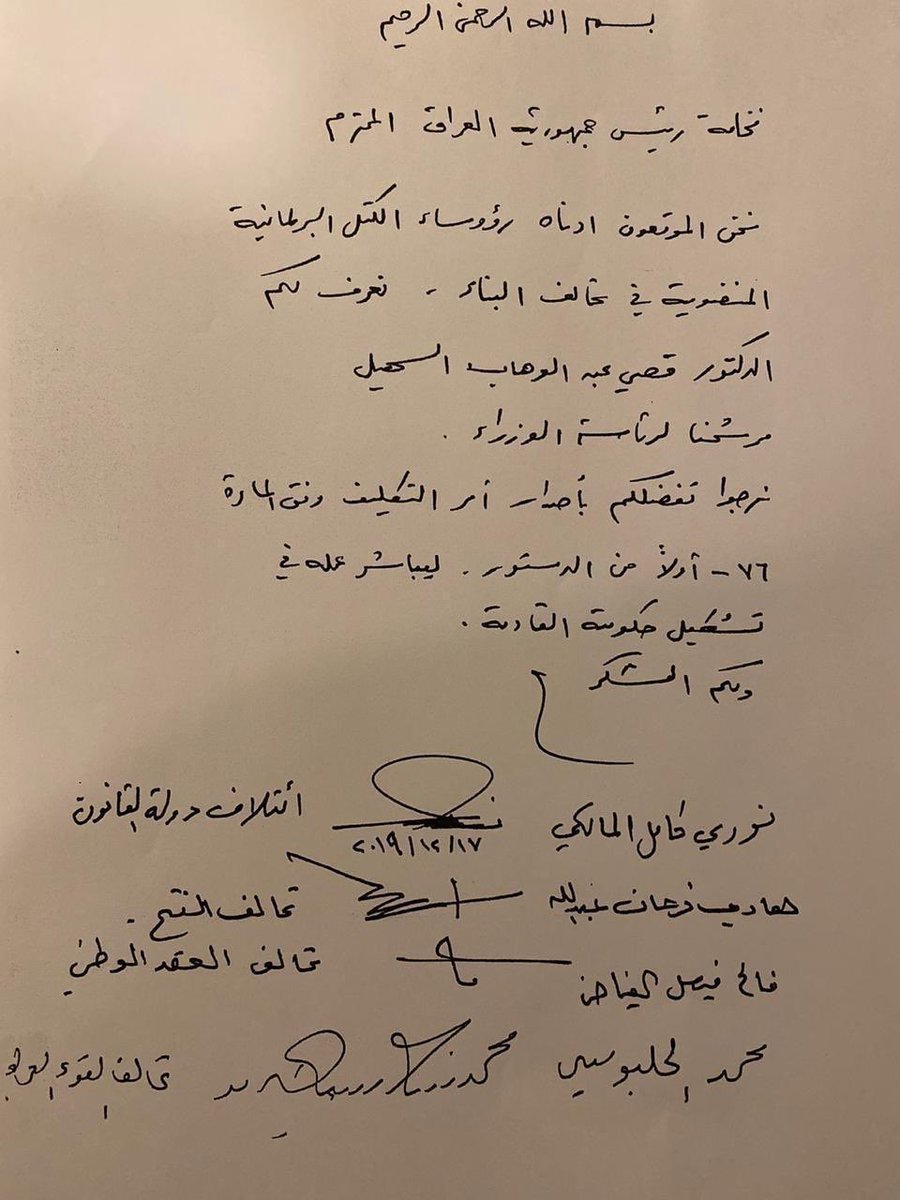 بسم الله الرحمن الرحيم
فخامة رئيس جمهورية العراق المحترم
نحن الموقعون ادناه رؤوساء الكتل البرلمانية
المنضوية في تحالف البناء، نعرف لكم
الدكتور قصي عبد الوهاب السهيل
مرشحنا لرئاسة الوزراء.
نرجوا تفضلكم بأصدار أمر التكليف وفق المادة
٧٦ - أولاً من الدستور. ليباشر عمله في
تشكيل حكومته القادمة.
ولكم الشكر
نوري كامل المالكي ائتلاف دولة القانون
٢٠١٩/١٢/١٧
هادي فرحان عبدالله تحالف الفتح.
فالح فيصل الفياض تحالف العقد الوطني
محمد الحلبوسي محمد تحالف القوى